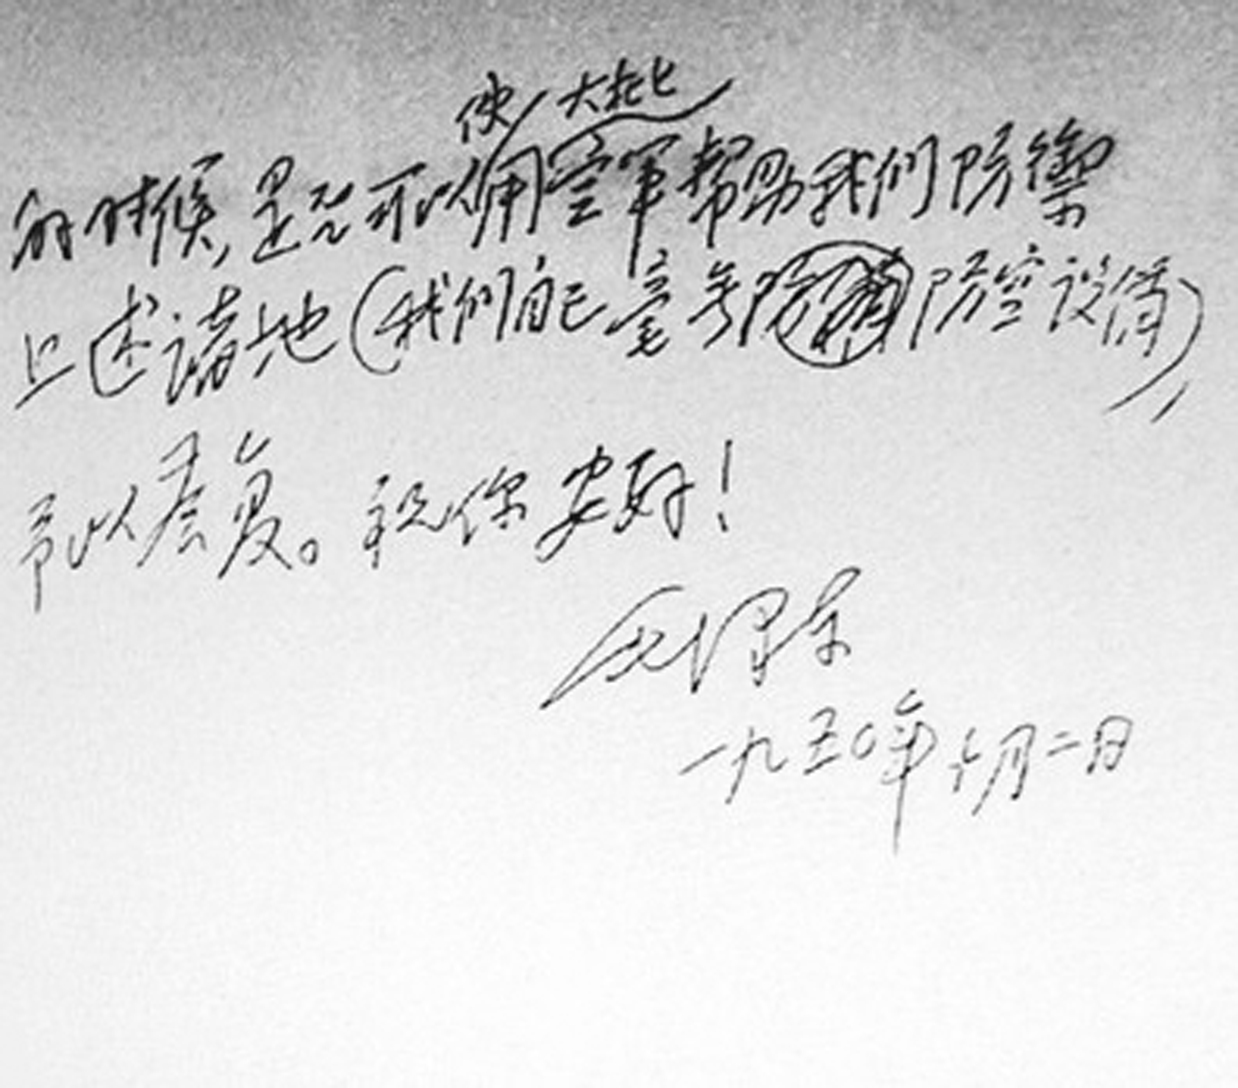 使 大批
的时候,是否可以用空军帮助我们防御
上述诸地(我们自己毫无防空设备),
予以答复。祝你安好!
毛泽东
一九五〇年十月二日